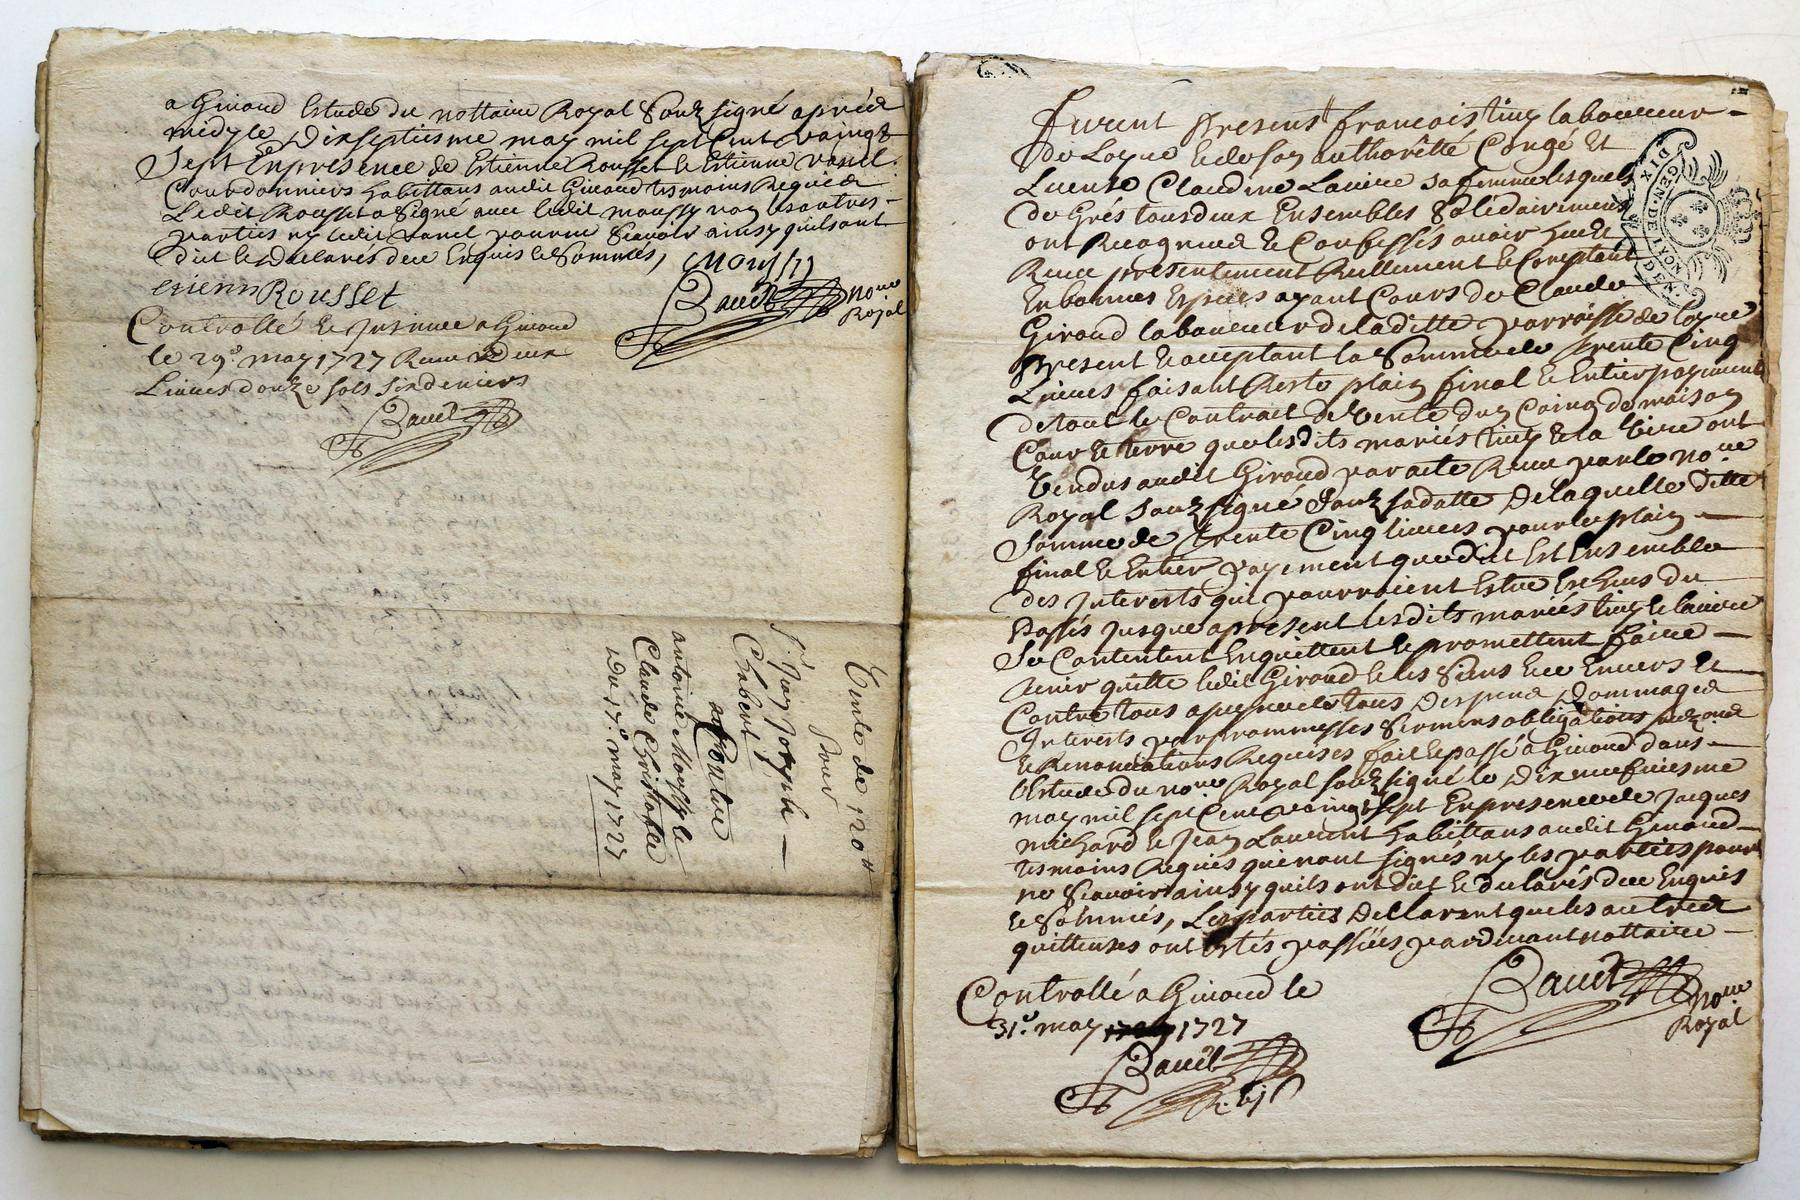 a Giraud Estude du nottaire Royal Soubsigné apried
midy le Dixseptiesme may mil sept Cent vaingt
Sept Enpresence de Estienne Rousset & Estienne vanel
Courdonniers habittans audit Giraud tesmoins Requied
Ledit Rousset a Signé avec ledit moussy non les autres
parties ny ledit vanel pour ne Scavoir ainsy quils ont
dit & Declarés deue Enquis & Sommés, moussy
etienn Rousset
Baudt
noire Royal
Controllé & Jnsinué a Giraud
le 29e may 1727 Receu deux
Livres douze sols six deniers
Baudt
Vente de 120 ll
Pour
Sr. Jean Joseph
Chabert
Contre
antoine Moussy &
Claude Christofle
Du 17e may 1727
GEN. DE LYON
Furent Presents francois tiny laboureur
de Loyre & de son authorité Congé Et
License Claudine Laviere sa femme lesquels
de Grés tous deux Ensembles Solidairement
ont Recognus & Confessés avoir heu &
Receu presentement Reellement & Comptant
En bonnes Espices ayant Cours de Claude
Giraud laboureur de laditte parroisse de Loyre
present & acceptant la Somme de trente Cinq
Livres faisant Reste plain final & Entier payement
de tout le Contract de Vente dun Coing de maison
Cour & terre que lesdits mariés tiny & la Viere ont
Vendus audit Giraud par acte Receu par le noire
Royal Soubsigné Soubz sa datte De laquelle ditte
Somme de trente Cinq livres pour le plain
final & Entier payement que dit Est Ensemble
des Jnterests qui pourroient Estre Escheus du
Passés jusque apresent lesdits mariés tiny & laviere
Se Contentent Enquittent & promettent faire
tenir quitte ledit Giraud & les Siens Envers &
Contre tous a peyne de tous Despens Dommages
Jnterests par prommesses Sermens obligations
& Renonciations Requises fait & passé a Giraud dans
lEstude du noire Royal soubsigné le Dix neufviesme
may mil sept Cent vaingt Sept Enpresence de Jacques
michard & Jean Laurent habittans audit Giraud
tesmoins Requis qui nont signés ny les parties pour
ne Scavoir ainsy quils ont dit & declarés deue Enquis
& Sommés, Les parties Decllarent que les autres
quittenses ont Estés passées pardevant nottaire
Baudt
noire Royal
Controllé a Giraud le
31e may 1727
Baudt